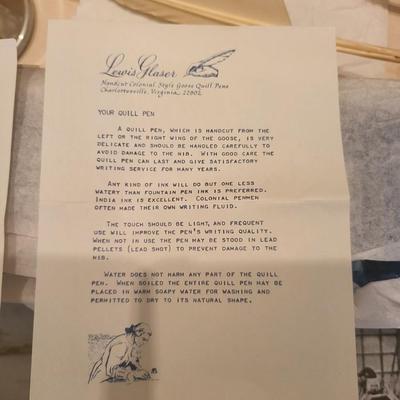 Lewis Glaser
Handcut Colonial Style Goose Quill Pens
Charlottesville, Virginia 22902
YOUR QUILL PEN
A QUILL PEN, WHICH IS HANDCUT FROM THE
LEFT OR THE RIGHT WING OF THE GOOSE, IS VERY
DELICATE AND SHOULD BE HANDLED CAREFULLY TO
AVOID DAMAGE TO THE NIB. WITH GOOD CARE THE
QUILL PEN CAN LAST AND GIVE SATISFACTORY
WRITING SERVICE FOR MANY YEARS.
ANY KIND OF INK WILL DO BUT ONE LESS
WATERY THAN FOUNTAIN PEN INK IS PREFERRED.
INDIA INK IS EXCELLENT. COLONIAL PENMEN
OFTEN MADE THEIR OWN WRITING FLUID.
THE TOUCH SHOULD BE LIGHT, AND FREQUENT
USE WILL IMPROVE THE PEN'S WRITING QUALITY.
WHEN NOT IN USE THE PEN MAY BE STOOD IN LEAD
PELLETS (LEAD SHOT) TO PREVENT DAMAGE TO THE
NIB.
WATER DOES NOT HARM ANY PART OF THE QUILL
PEN. WHEN SOILED THE ENTIRE QUILL PEN MAY BE
PLACED IN WARM SOAPY WATER FOR WASHING AND
PERMITTED TO DRY TO ITS NATURAL SHAPE.